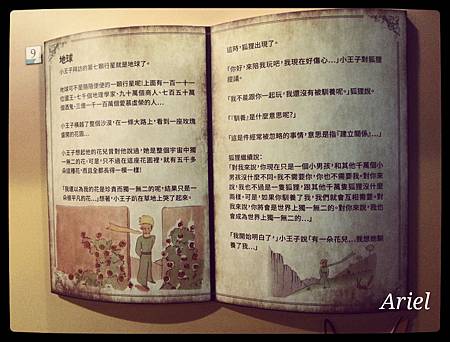 9
地球
小王子拜訪的第七顆行星就是地球了。
地球可不是隨隨便便的一顆行星呢!上面有一百一十一
位國王、七千個地理學家、九十萬個商人、七百五十萬
個酒鬼、三億一千一百萬個愛慕虛榮的人...
小王子橫越了整個沙漠,在一條大路上,看到一座玫瑰
盛開的花園...
小王子想起他的花兒曾對他說過,她是整個宇宙中獨
一無二的花,可是,只不過在這座花園裡,就有五千多
朵這種花,而且全都長得一模一樣!
「我還以為我的花是珍貴而獨一無二的呢,結果只是一
朵很平凡的花...」想著,小王子趴在草地上哭了起來。
這時,狐狸出現了。
「你好,來陪我玩吧,我現在好傷心...」小王子對狐狸
提議。
「我不能跟你一起玩,我還沒有被馴養呢。」狐狸說。
「『馴養』是什麼意思呢?」
「這是件經常被忽略的事情,意思是指『建立關係』...」
狐狸繼續說:
「對我來說,你現在只是一個小男孩,和其他千萬個小
男孩沒什麼不同。我不需要你,你也不需要我。對你來
說,我也不過是一隻狐狸,跟其他千萬隻狐狸沒什麼
兩樣。可是,如果你馴養了我,我們就會互相需要,對
我來說,你將會是世界上獨一無二的。對你來說,我也
會成為世界上獨一無二的...」
「我開始明白了,」小王子說「有一朵花兒,...我想她馴
養了我...」
Ariel